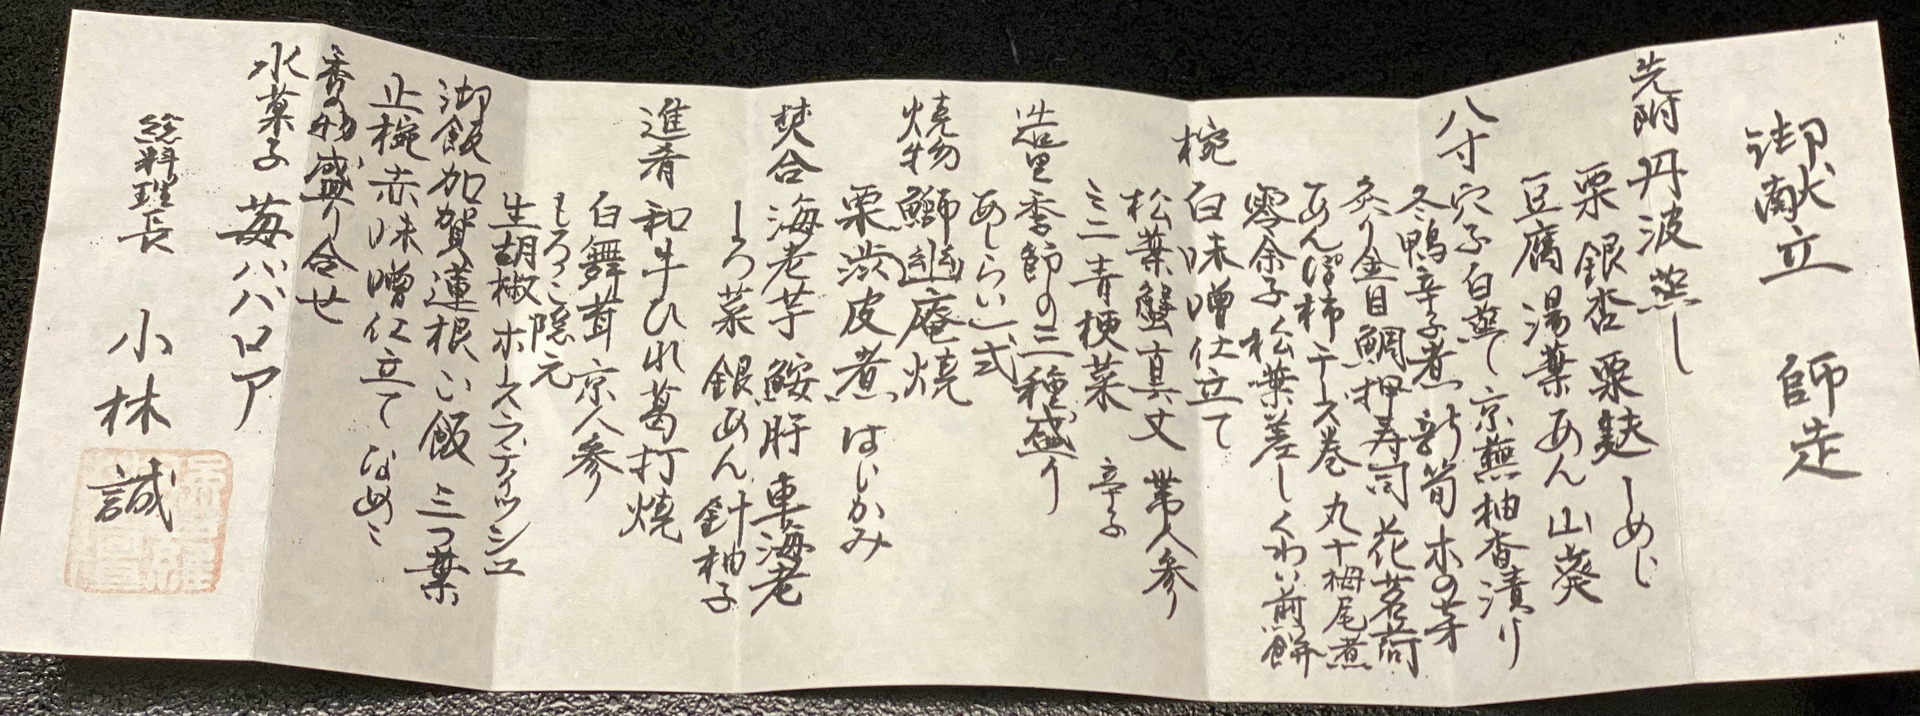 御献立 師走
先附 丹波蒸し
栗 銀杏 粟麩 しめじ
豆腐 湯葉あん 山葵
八寸 穴子白蒸し 京蕪柚香漬り
冬鴨辛子煮 新筍木の芽
炙り金目鯛押寿司 花茗荷
あんぽ柿チーズ巻 丸十栂尾煮
零余子松葉差し くわい煎餅
椀 白味噌仕立て
松葉蟹真丈 帯人参
ミニ青梗菜 辛子
造里 季節の三種盛り
あしらい一式
焼物 鰤幽庵焼
栗渋皮煮 はじかみ
焚合 海老芋 鮟肝 車海老
しろ菜 銀あん 針柚子
進肴 和牛ひれ葛打焼
白舞茸 京人参
もろこ隠元
生胡椒ホースラディッシュ
御飯 加賀蓮根い飯 三つ葉
止椀 赤味噌仕立て なめこ
香の物盛り合せ
水菓子 苺ババロア
総料理長 小林 誠